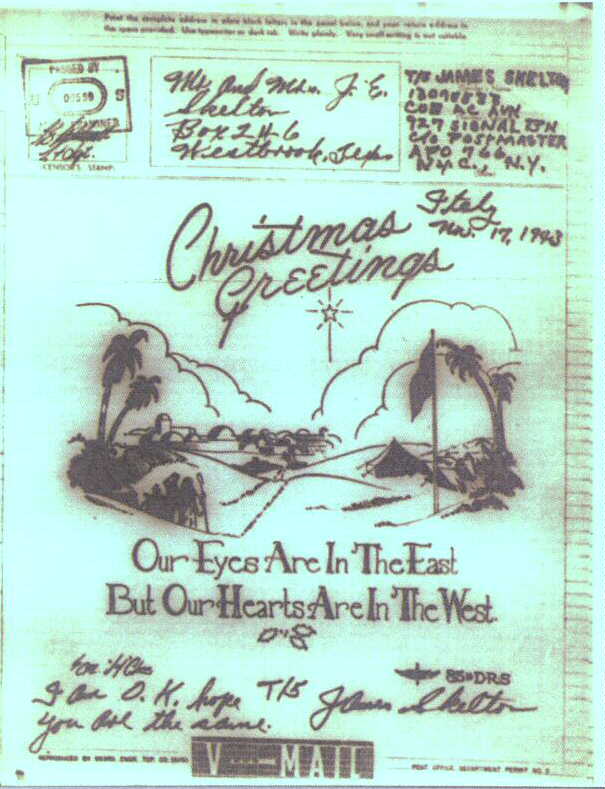 Print the complete address in plain block letters in the panel below, and your return address in
the space provided. Use typewriter or dark ink. Write plainly. Very small writing is not suitable
PASSED BY
U S
CENSOR'S STAMP
Mr. and Mrs. J. E.
Skelton
Box 246
Westbrook, Texas
T/5 JAMES SKELTON
CO B AC AVN
927 SIGNAL BN
C/O POSTMASTER
APO 766
N.Y.C., N.Y.
Italy
Nov. 17, 1943
Christmas
Greetings
Our Eyes Are In The East
But Our Hearts Are In The West.
I am O. K. hope
you are the same.
T/5 James Skelton
85th DRS
V-MAIL
POST OFFICE DEPARTMENT PERMIT NO. 5